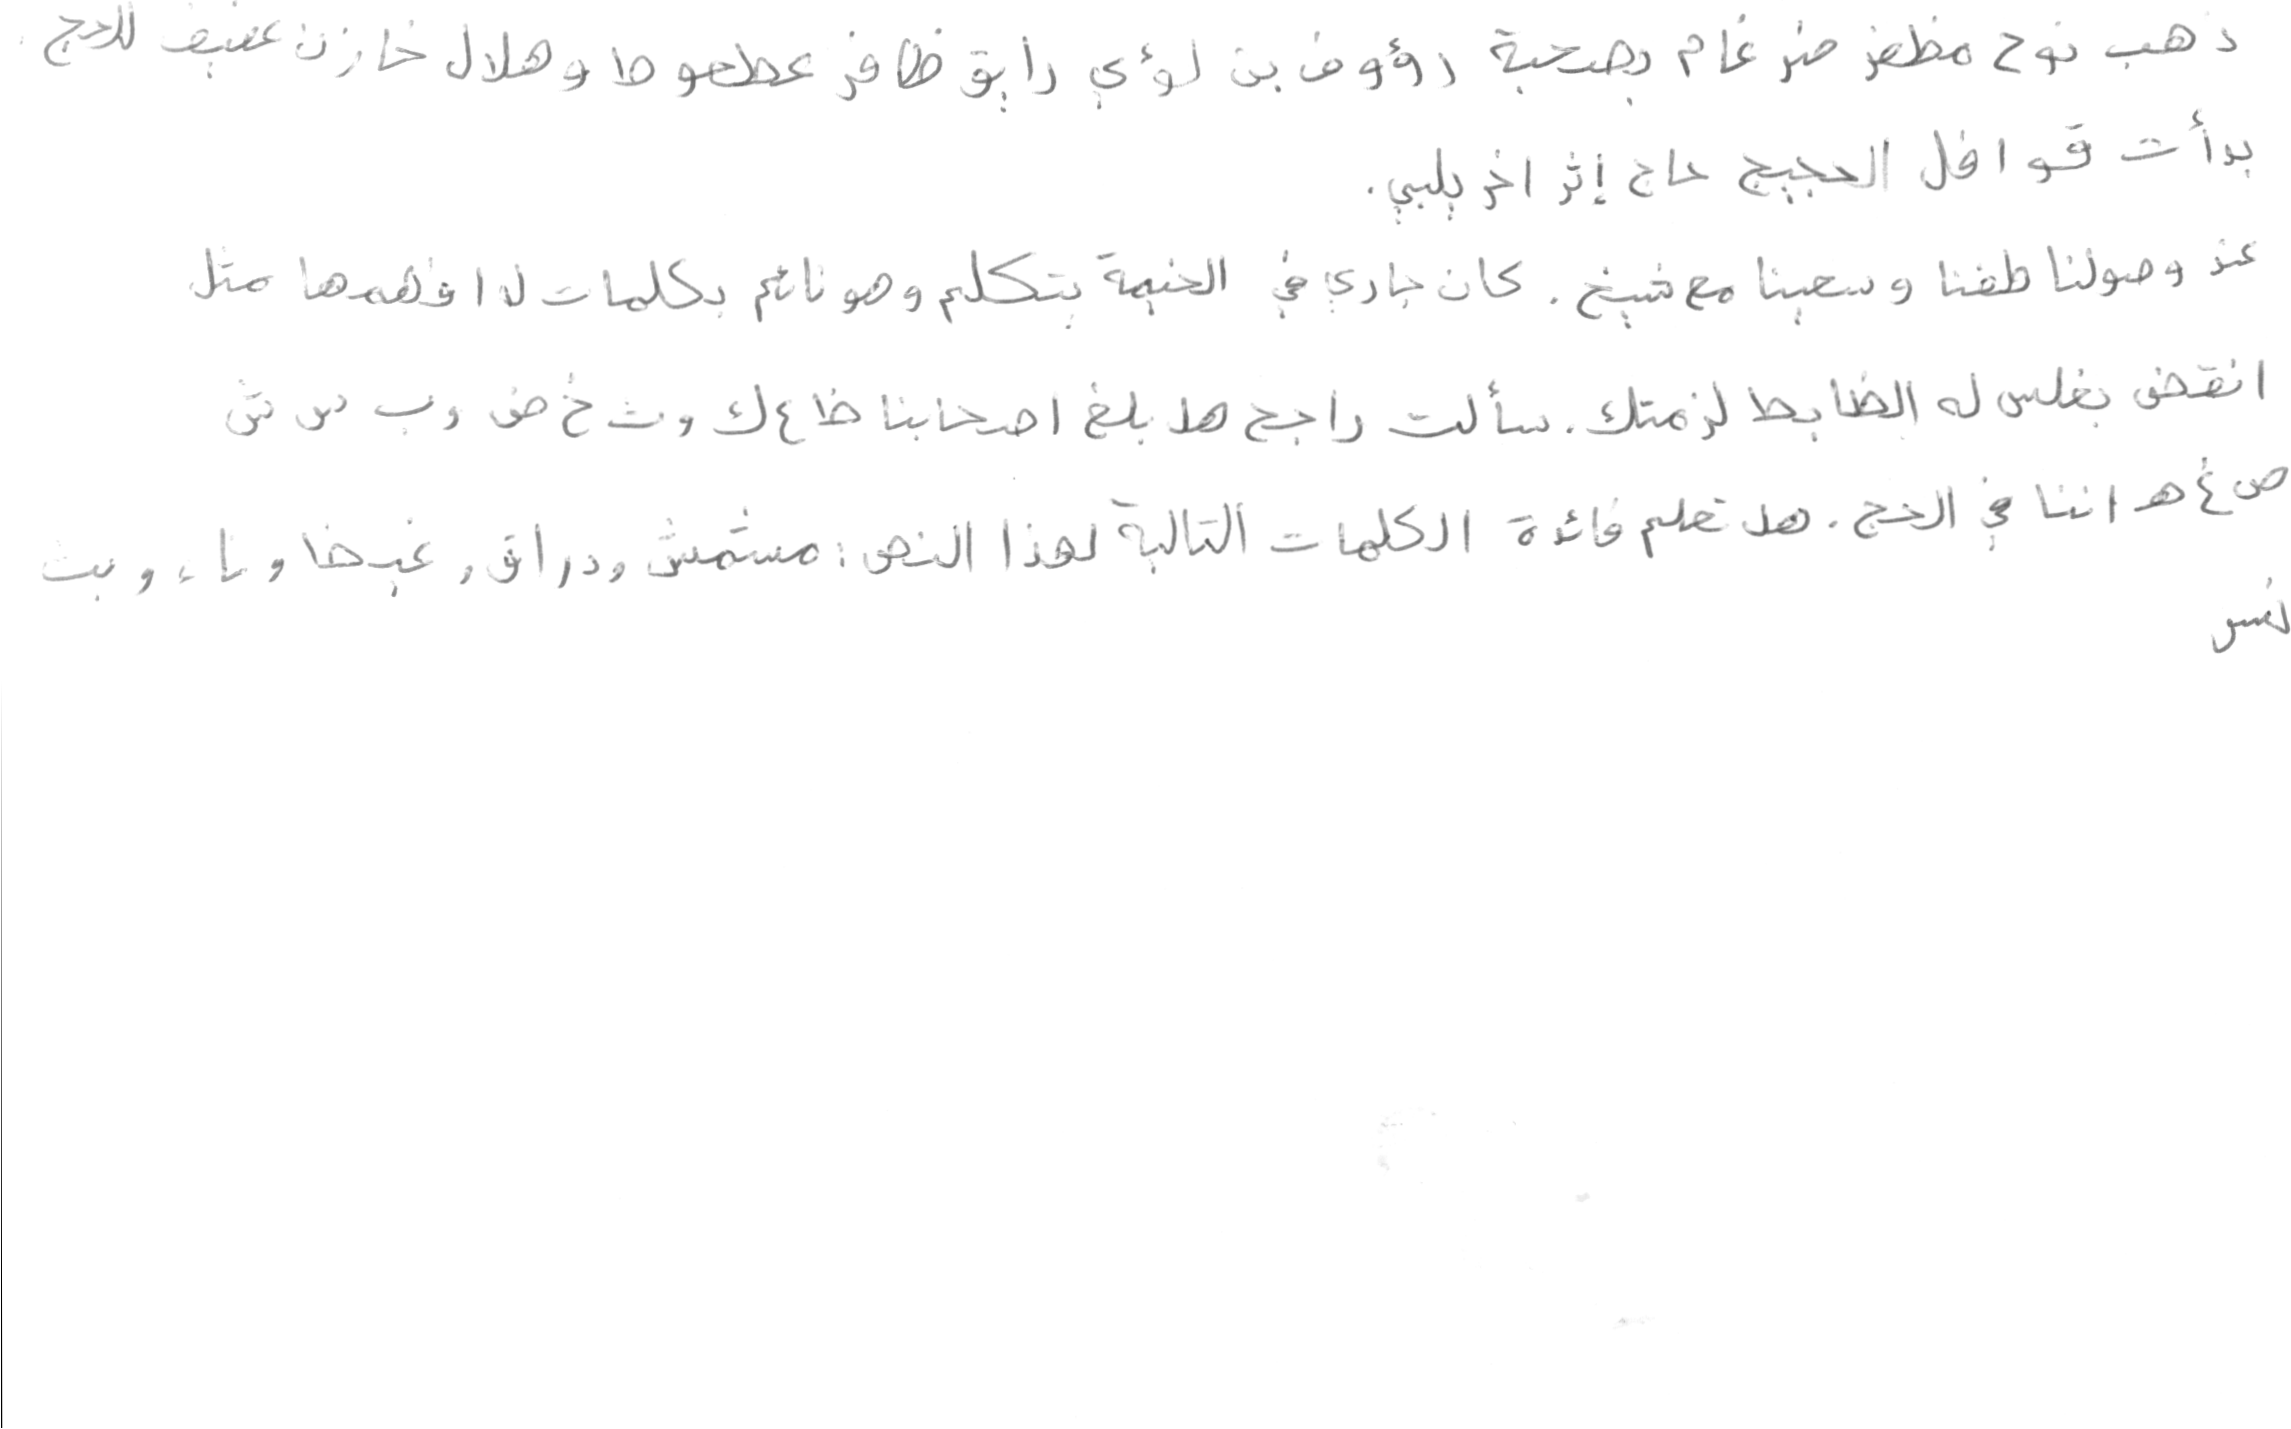 ذهب نوح مظفر ضرغام بصحبة رؤوف بن لؤي رايق ظافر عطعوط وهلال خازن عفيف للحج.
بدأت قوافل الحجيج حاج إثر اخر يلبي.
عند وصولنا طفنا وسعينا مع شيخ. كان جاري في الخيمة يتكلم وهو نائم بكلمات لا افهمها مثل
انقض بغلس له الظابط لزمتك. سألت راجح هل بلغ اصحابنا ظ ع ك و ث خ ض و ب س ش
ص غ هـ اننا في الحج. هل تعلم فائدة الكلمات التالية لهذا النص: مشمش ودراق, غيظ وماء وبث
نفس